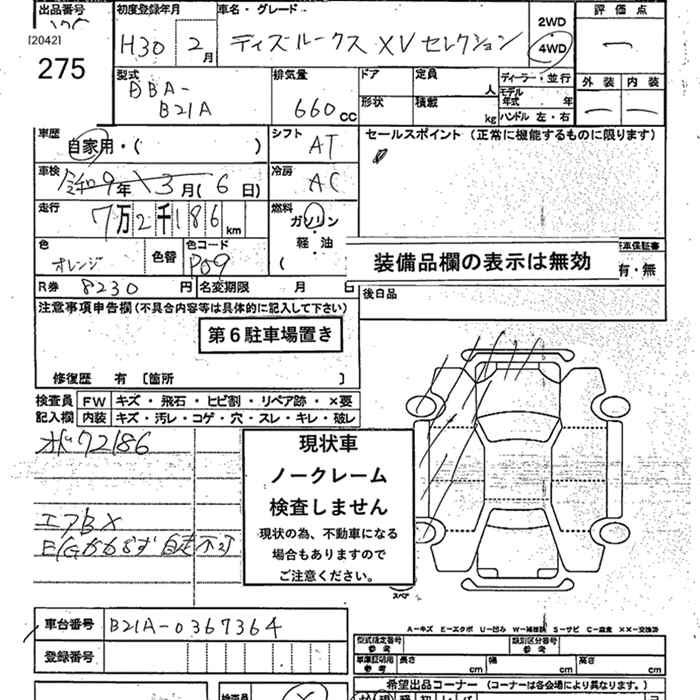 出品番号
[2042]
275
初度登録年月
H30 2月
車名・グレード
デイズルークス XV セレクション
2WD
・
4WD
評価点
外装 内装
型式
DBA-
B21A
排気量
660 CC
ドア
形状
定員
人
積載
kg
ディーラー・並行
モデル
年式 年
ハンドル 左・右
車歴
自家用・( )
シフト
AT
セールスポイント (正常に機能するものに限ります)
車検
令和9年 3月(6日)
冷房
AC
走行
7万2千186km
燃料
ガソリン
・
軽油
(
色
オレンジ
色替
色コード
P09
装備品欄の表示は無効
車保証書
有・無
R券 8230 円
名変期限 月 日
後日品
注意事項申告欄(不具合内容等は具体的に記入して下さい)
第6駐車場置き
修復歴 有 〔箇所 〕
検査員
記入欄
FW キズ・飛石・ヒビ割・リペア跡・×要
内装 キズ・汚レ・コゲ・穴・スレ・キレ・破レ
オド72186
エアBX
E/Gかからず 自走不可
現状車
ノークレーム
検査しません
現状の為、不動車になる
場合もありますので
ご注意ください。
スペア
A－キズ E－エクボ U－凹み W－補修跡 S－サビ C－腐食 ××－交換済
車台番号 B21A-0367364
登録番号
型式指定番号
参考
類別区分番号
参考
車庫証明用
参考
長さ cm
幅 cm
高さ cm
希望出品コーナー (コーナーは各会場により異なります。)
検査員